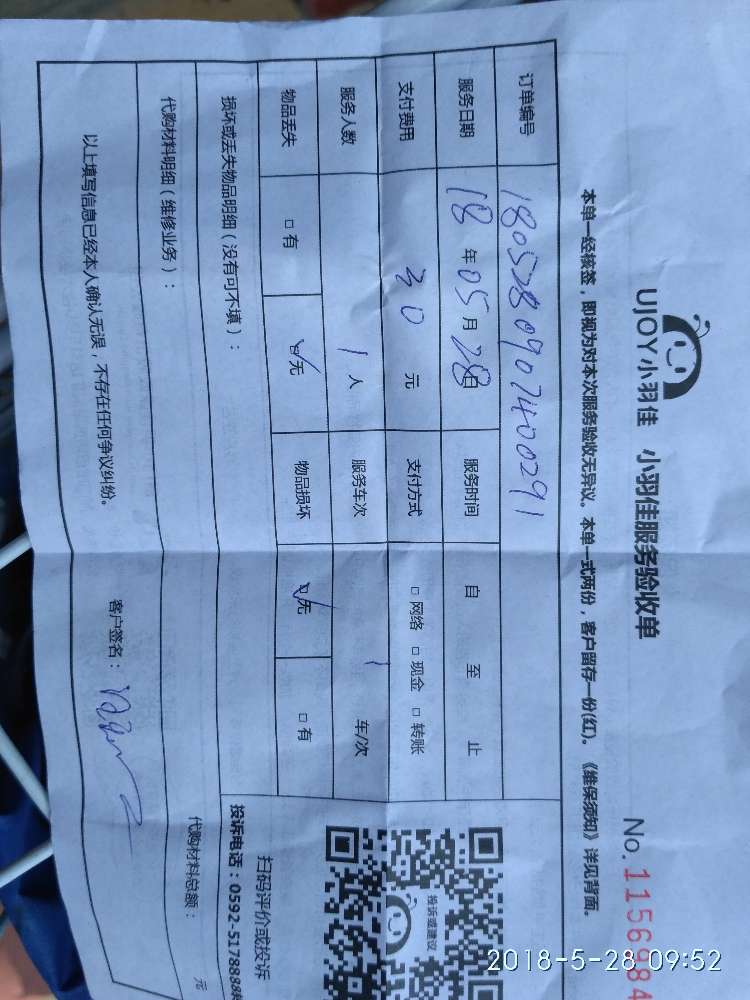 UJOY小羽佳 小羽佳服务验收单
No. 1156984
本单一经核签，即视为对本次服务验收无异议。本单一式两份，客户留存一份(红)。《维保须知》详见背面。
订单编号 180528090740029 1
服务日期 18 年 05 月 28 日 服务时间 自 至 止
支付费用 30 元 支付方式 □ 网络 □ 现金 □ 转账
服务人数 1 人 服务车次 1 车/次
物品丢失 □ 有 ☑ 无 物品损坏 ☑ 无 □ 有
损坏或丢失物品明细（没有可不填）：
代购材料明细（维修业务）：
代购材料总额： 元
以上填写信息已经本人确认无误，不存在任何争议纠纷。
客户签名：
投诉或建议
扫码评价或投诉
投诉电话：0592-5178888
2018-5-28 09:52